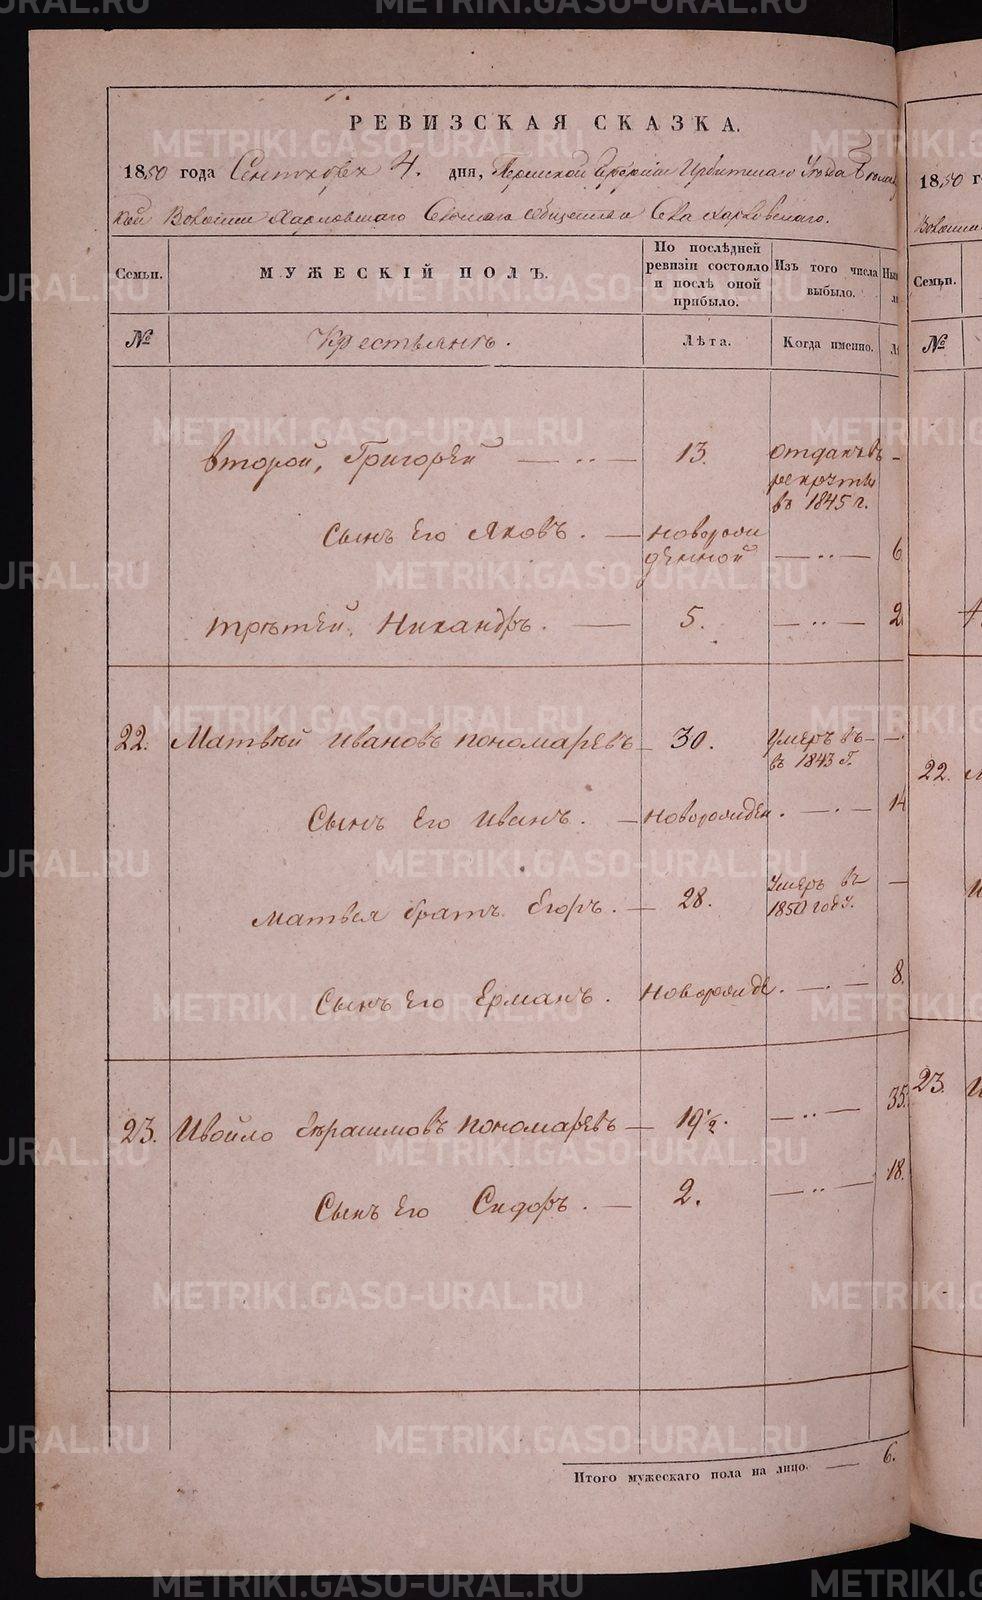 РЕВИЗСКАЯ СКАЗКА.
1850 года Сентября 4. дня, Пермской Губерніи Ирбитскаго Уѣзда
Волости Харловскаго Сельскаго общества Села Харловскаго.
Семьи.
МУЖЕСКІЙ ПОЛЪ.
По послѣдней ревизіи состояло и послѣ оной прибыло.
Изъ того числа выбыло.
№
Крестьянъ.
Лѣта.
Когда именно.
второй, Григорей — „ — 13. отданъ въ
рекруты
въ 1845 г. —
Сынъ Его Яковъ. — новорож
денной — „ — 6
третей, Никандръ. — 5. — „ — 2
22. Матвѣй Ивановъ Пономаревъ — 30. умеръ въ —
въ 1843 г.
Сынъ Его Иванъ. — новорожден. — „ — 14
Матвея братъ Егоръ. — 28. Умеръ въ —
1850 году.
Сынъ Его Ерманъ. новорожде. — „ — 8.
23. Ивойло Герасимовъ Пономаревъ — 19½. — „ — 35.
Сынъ Его Сидоръ. — 2. — „ — 18.
Итого мужескаго пола на лицо. — 6.
1850 г
Волости
Семьи.
№
22.
23.
METRIKI.GASO-URAL.RU